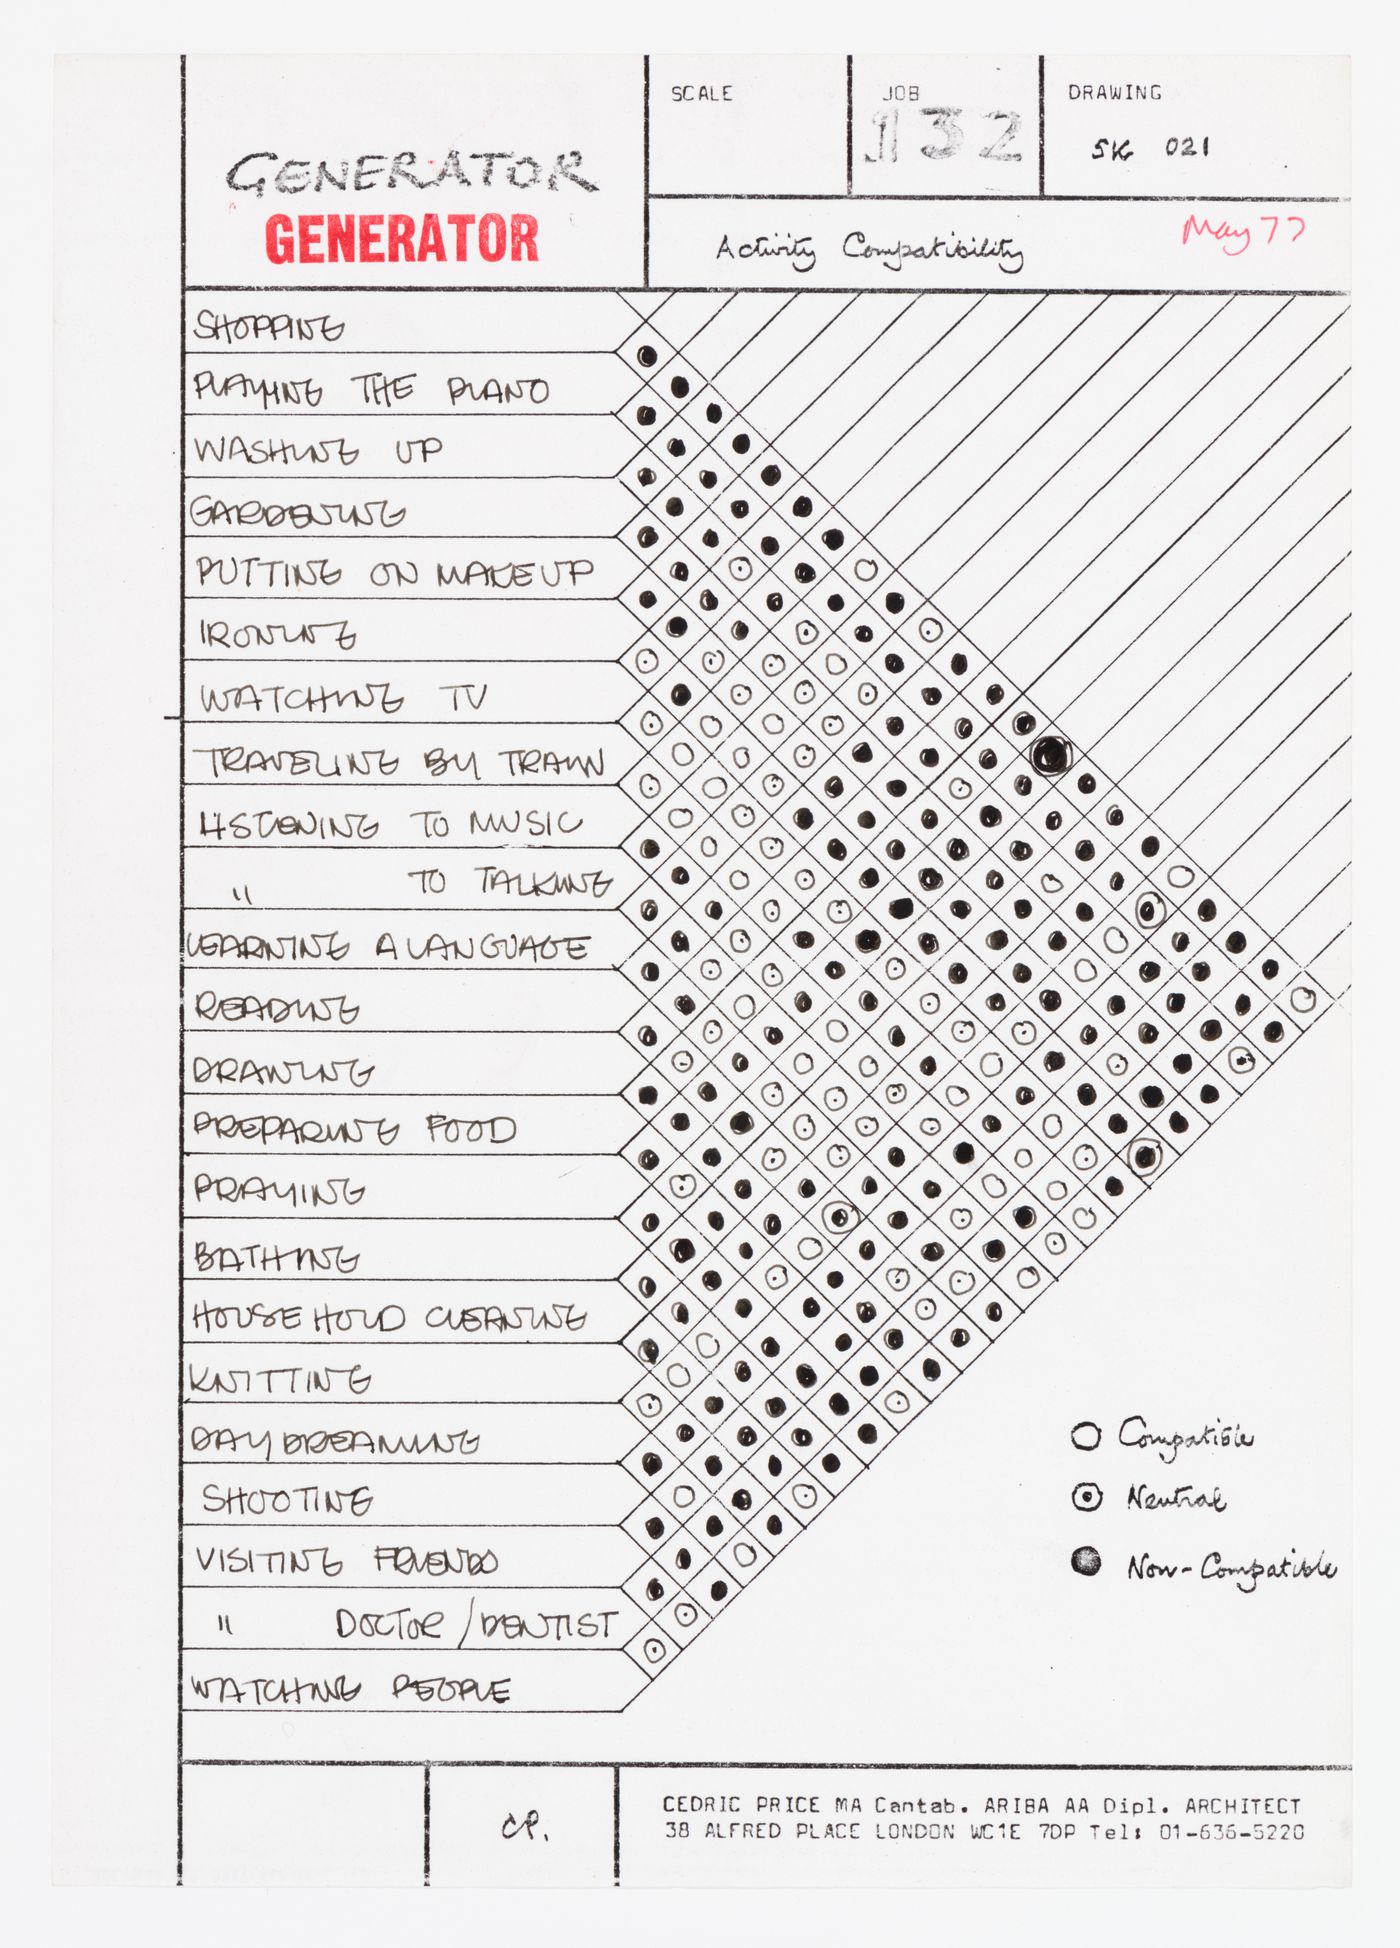 SCALE
JOB
132
DRAWING
SK 021
GENERATOR
GENERATOR
Activity Compatibility
May 77
SHOPPING
PLAYING THE PIANO
WASHING UP
GARDENING
PUTTING ON MAKEUP
IRONING
WATCHING TV
TRAVELING BY TRAIN
LISTENING TO MUSIC
" TO TALKING
LEARNING A LANGUAGE
READING
DRAWING
PREPARING FOOD
PRAYING
BATHING
HOUSEHOLD CLEANING
KNITTING
DAYDREAMING
SHOOTING
VISITING FRIENDS
" DOCTOR/DENTIST
WATCHING PEOPLE
Compatible
Neutral
Non-Compatible
CP.
CEDRIC PRICE MA Cantab. ARIBA AA Dipl. ARCHITECT
38 ALFRED PLACE LONDON WC1E 7DP Tel: 01-636-5220